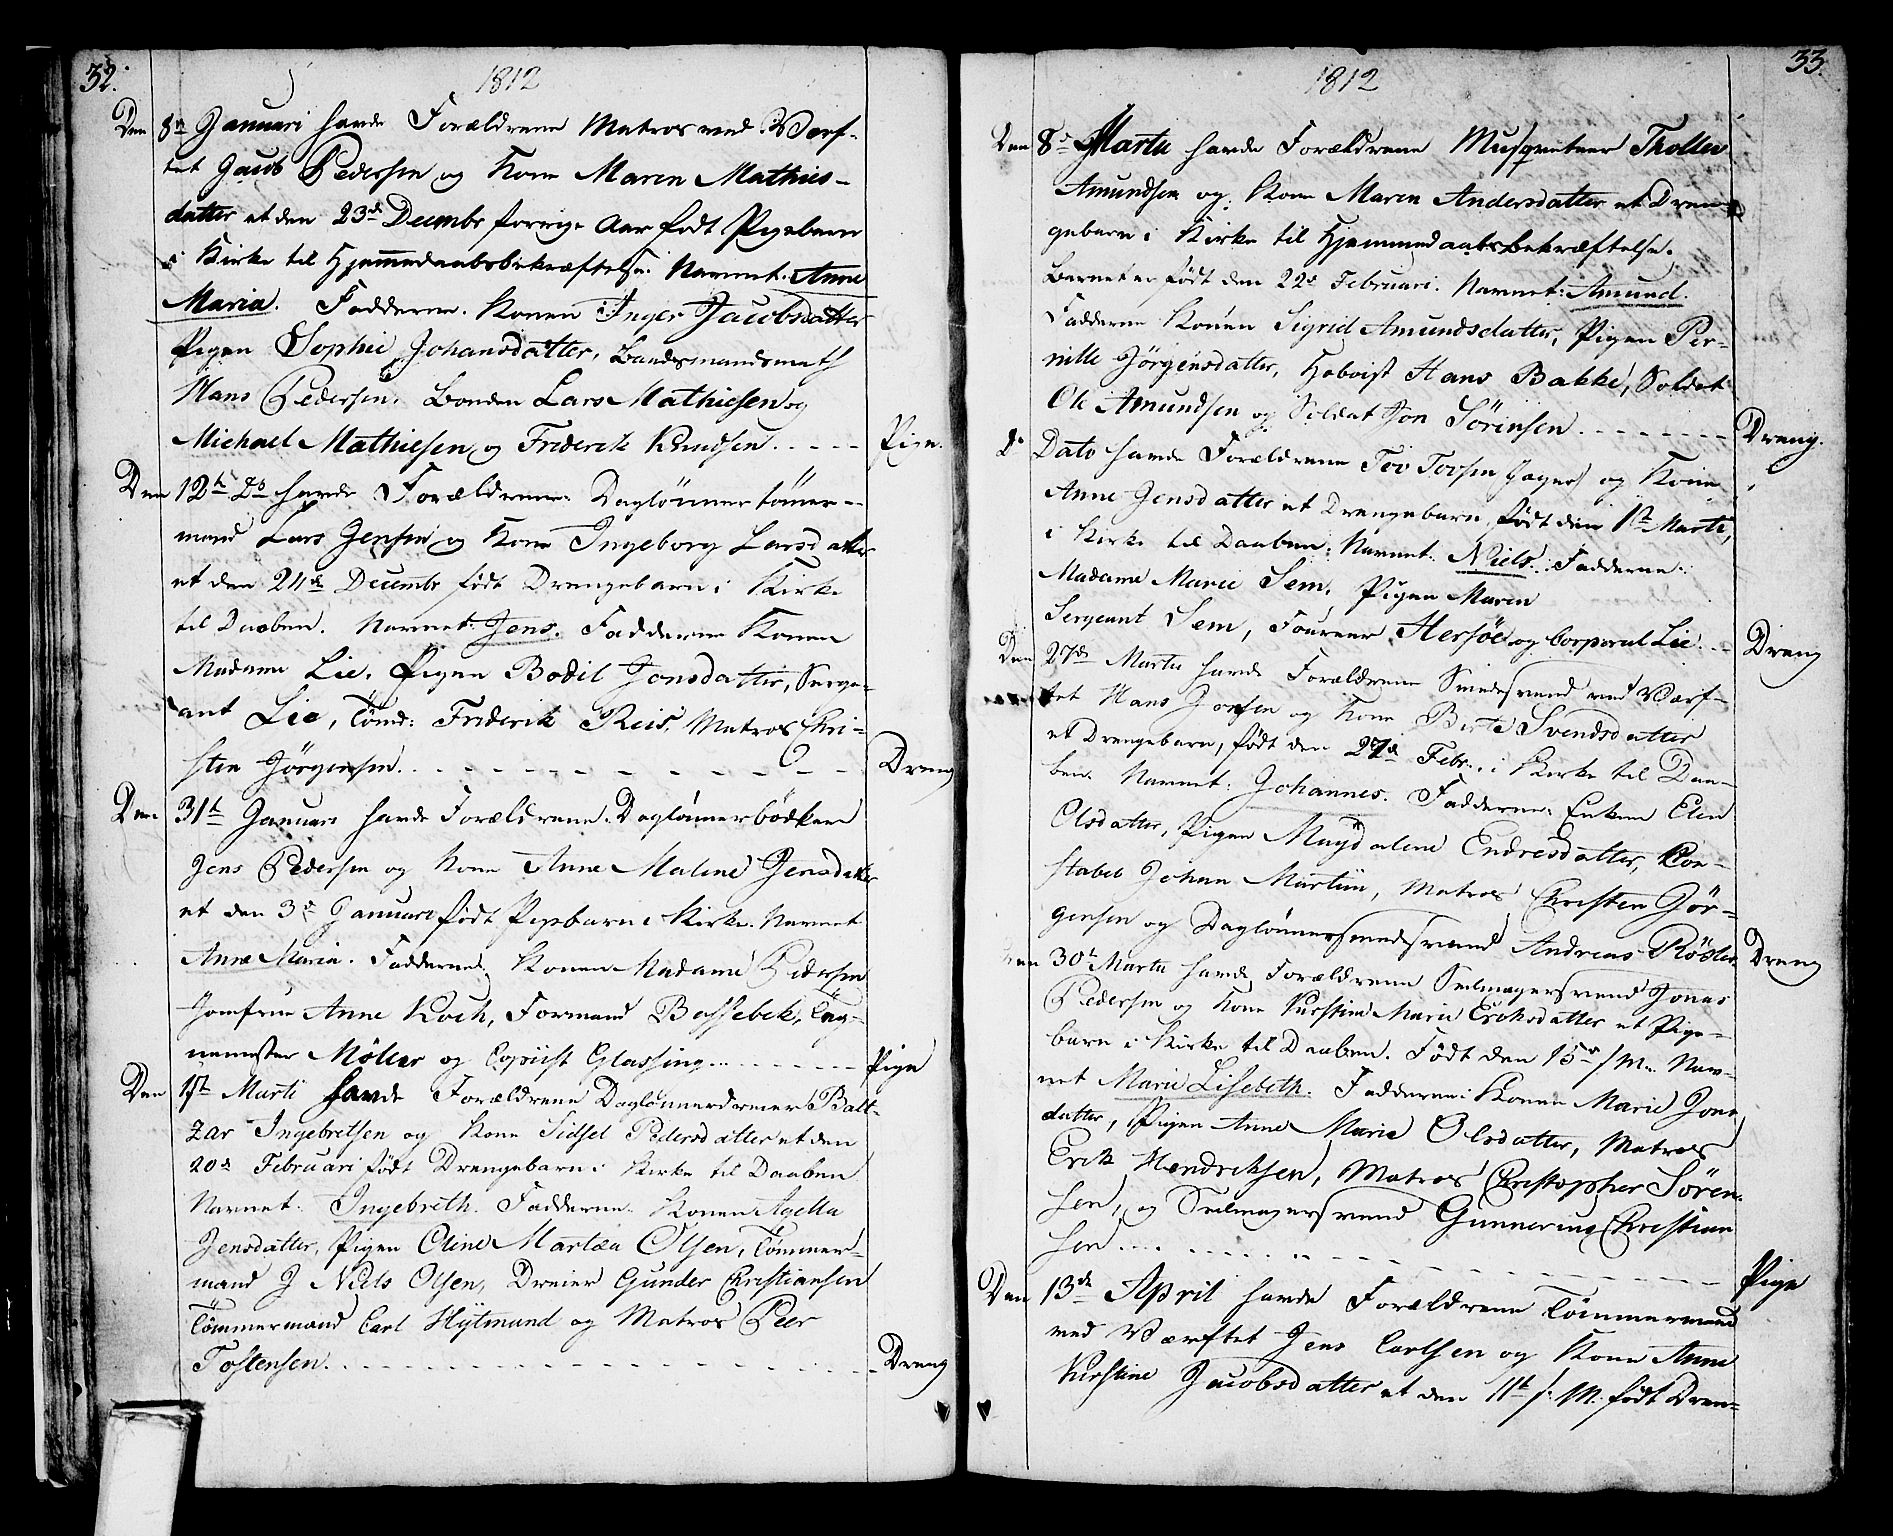 32.
1812
Den 8de Januari havde Forældrene Matros ved Værf-
tet Jacob Pedersen og Kone Maren Mathies-
datter et den 23de Decembr forrige Aar født Pigebarn
i Kirke til Hjemmedaabsbekræftelse. Navnet: Anne
Maria. Fadderne. Konen Inger Jacobsdatter
Pigen Sophie Johansdatter, Baadsmandsmath
Hans Pedersen. Bonden Lars Mathiesen og
Michael Mathiesen og Friderik Knudsen. Pige.
Den 12te Do havde Forældrene: Daglønnertømer-
mand Lars Jensen og Kone Ingeborg Larsdatter
et den 24de Decembr født Drengebarn i Kirke
til Daaben. Navnet: Jens. Fadderne Konen
Madame Lie. Pigen Bodil Jonsdatter, Serge-
ant Lie, Tømd: Friderik Reis, Matros Chri-
sten Jørgensen. Dreng
Den 31te Januari havde Forældrene: Daglønnerbødker
Jens Pedersen og Kone Anne Malene Jensdatter
et den 3de Januari født Pigebarn i Kirke. Navnet
Anne Maria. Fadderne. Konen Madame Pedersen
Jomfrue Anne Koch, Formand Bassebek, Tag-
nemester Møller og Copiist Glassing. Pige
Den 1ste Marti havde Forældrene Daglønnerdreier Balt-
zar Ingebretsen og Kone Sidsel Pedersdatter et den
20de Februari født Drengebarn i Kirke til Daaben
Navnet: Ingebreth. Fadderne. Konen Agetta
Jensdatter, Pigen Oline Martæa Olsen, Tømmer-
mand J Niels Olsen, Dreier Gunder Christiansen
Tømmermand Carl Hytmund og Matros Peer
Tostensen. Dreng
33.
1812
Den 8de Martii havde Forældrene Musqueteer Thollev
Amundsen og Kone Maren Andersdatter et Dren-
gebarn i Kirke til Hjemmedaabsbekræftelse.
Barnet er født den 22de Februari. Navnet: Amund.
Fadderne Konen Sigrid Amundsdatter, Pigen Per-
nille Jørgensdatter, Hoboist Hans Bakke, Soldat
Ole Amundsen og Soldat Jon Sørensen. Dreng.
do Dato havde Forældrene Tov Tovsen Jager og Kone
Anne Jensdatter et Drengebarn, født den 1ste Marti,
i Kirke til Daaben. Navnet: Niels. Fadderne.
Madame Marie Sem, Pigen Maren
Sergeant Sem, Foureer Hersøe og Corporal Lie. Dreng
Den 27de Martii havde Forældrene Smedesvend ved Værf-
tet Hans Jonsen og Kone Berte Svendsdatter
et Drengebarn, født den 27de Febr. i Kirke til Daa-
ben. Navnet: Johannes. Fadderne: Enken Elen
Olsdatter, Pigen Magdalene Endresdatter, Con-
stabel Johan Martin, Matros Christen Jør-
gensen og Daglønnersmedesvend Andreas Røsler Dreng
Den 30te Martii havde Forældrene Seilmagersvend Jonas
Pedersen og Kone Kirstine Marie Erichsdatter et Pige-
barn i Kirke til Daaben. Født den 15de s/M. Nav-
net Marie Lisebeth. Fadderne: Konen Marie Jons
datter, Pigen Anne Marie Olsdatter, Matros
Erik Hendriksen, Matros Christopher Søren-
sen, og Seilmagersvend Gunnerius Christian
sen. Pige
Den 13de April havde Forældrene Tømmermand
ved Værftet Jens Carlsen og Kone Anne
Kirstine Jacobsdatter et den 11te s: M: født Dren-